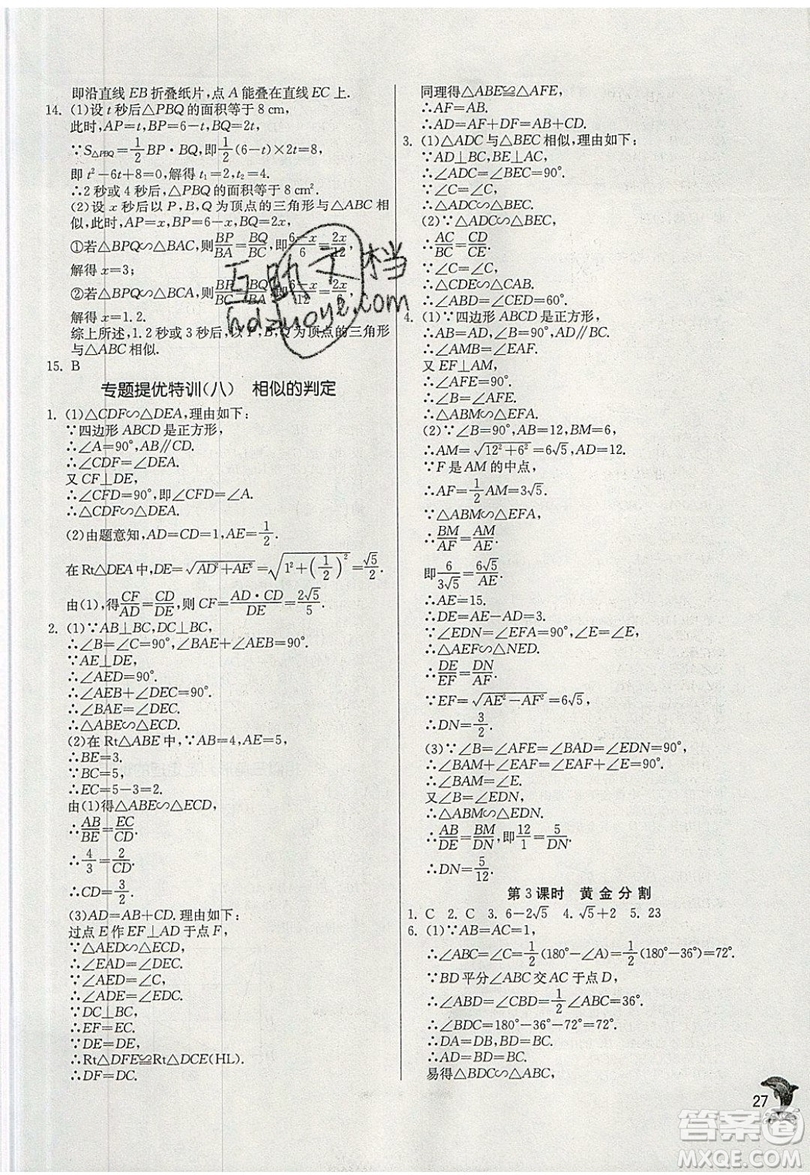 即沿直线 EB 折叠纸片,点 A 能叠在直线 EC 上.
14. (1)设 t 秒后△PBQ 的面积等于 8 cm,
此时,AP=t,BP=6-t,BQ=2t,
∵S△PBQ=1/2 BP·BQ,即1/2(6-t)×2t=8,
即 t²-6t+8=0,解得 t₁=2,t₂=4.
∴2 秒或 4 秒后,△PBQ 的面积等于 8 cm².
(2)设 x 秒后以 P、B、Q 为顶点的三角形与△ABC 相
似,此时,AP=x,BP=6-x,BQ=2x,
①若△BPQ∽△BAC,则BP/BA=BQ/BC,即(6-x)/6=2x/12,
解得 x=3;
②若△BPQ∽△BCA,则BP/BC=BQ/BA,即(6-x)/12=2x/6,
解得 x=1.2.
综上所述,1.2 秒或 3 秒后,以 P、B、Q 为顶点的三角形
与△ABC 相似.
15. B
专题提优特训(八) 相似的判定
1. (1)△CDF∽△DEA,理由如下:
∵四边形 ABCD 是正方形,
∴∠A=90°,AB∥CD.
∴∠CDF=∠DEA.
又 CF⊥DE,
∴∠CFD=90°,即∠CFD=∠A.
∴△CDF∽△DEA.
(2)由题意知,AD=CD=1,AE=1/2.
在 Rt△DEA 中,DE=√(AD²+AE²)=√(1²+(1/2)²)=√5/2.
由(1),得CF/AD=CD/DE,则 CF=AD·CD/DE=2√5/5.
2. (1)∵AB⊥BC,DC⊥BC,
∴∠B=∠C=90°,∠BAE+∠AEB=90°.
∵AE⊥DE,
∴∠AED=90°.
∴∠AEB+∠DEC=90°.
∴∠DEC=∠BAE.
∴△ABE∽△ECD.
(2)在 Rt△ABE 中,∵AB=4,AE=5,
∴BE=3.
∵BC=5,
∴EC=5-3=2.
由(1)得△ABE∽△ECD,
∴AB/BE=EC/CD.
∴4/3=2/CD.
∴CD=3/2.
(3)AD=AB+CD.理由如下:
过点 E 作 EF⊥AD 于点 F,
∵△AED∽△ECD,
∴∠EAD=∠DEC.
∴∠ADE=∠EDC.
∵DC⊥BC,
∴EF=EC.
∵DE=DE,
∴Rt△DFE≌Rt△DCE(HL).
∴DF=DC.
同理得△ABE≌△AFE,
∴AF=AB.
∴AD=AF+DF=AB+CD.
3. (1)△ADC 与△BEC 相似,理由如下:
∵AD⊥BC,BE⊥AC,
∴∠ADC=∠BEC=90°.
∵∠C=∠C,
∴△ADC∽△BEC.
(2)∵△ADC∽△BEC,
∴AC/BC=CD/CE.
∵∠C=∠C,
∴△CDE∽△CAB.
∴∠ABD=∠CED=60°.
4. (1)∵四边形 ABCD 是正方形,
∴AB=AD,∠B=90°,AD∥BC.
∴∠AMB=∠EAF.
又 EF⊥AM,
∴∠AFE=90°.
∴∠B=∠AFE.
∴△ABM∽△EFA.
(2)∵∠B=90°,AB=12,BM=6,
∴AM=√(12²+6²)=6√5,AD=12.
∵F 是 AM 的中点,
∴AF=1/2 AM=3√5.
∵△ABM∽△EFA,
∴BM/AF=AM/AE.
即6/3√5=6√5/AE.
∴AE=15.
∴DE=AE-AD=3.
∵∠EDN=∠EFA=90°,∠E=∠E,
∴△AEF∽△NED.
∴DE/EF=DN/AF.
∵EF=√(AE²-AF²)=6√5,
∴DN=3/2.
(3)∵∠B=∠AFE=∠BAD=∠EDN=90°,
∴∠BAM+∠EAF=∠EAF+∠AEF.
∴∠BAM=∠AEF.
又∠B=∠EDN,
∴△ABM∽△EDN.
∴AB/DE=BM/DN,即12/1=5/DN.
∴DN=5/12.
第 3 课时 黄 金 分 割
1. C 2. C 3. 6-2√5 4. √5+2 5. 23
6. (1)∵AB=AC=1,
∴∠ABC=∠C=1/2(180°-∠A)=1/2(180°-36°)=72°.
∵BD 平分∠ABC 交 AC 于点 D,
∴∠ABD=∠CBD=1/2∠ABC=36°.
∴∠BDC=180°-36°-72°=72°.
∴DA=DB,BD=BC.
∴AD=BD=BC.
易得△BDC∽△ABC,
27
互助文档
hdzuoye.com
答案圈
MXQE.COM